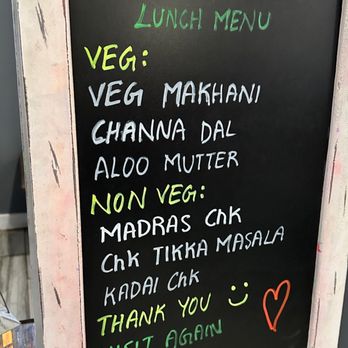 LUNCH MENU
VEG:
VEG MAKHANI
CHANNA DAL
ALOO MUTTER
NON VEG:
MADRAS Chk
Chk TIKKA MASALA
KADAI Chk
THANK YOU
AGAIN